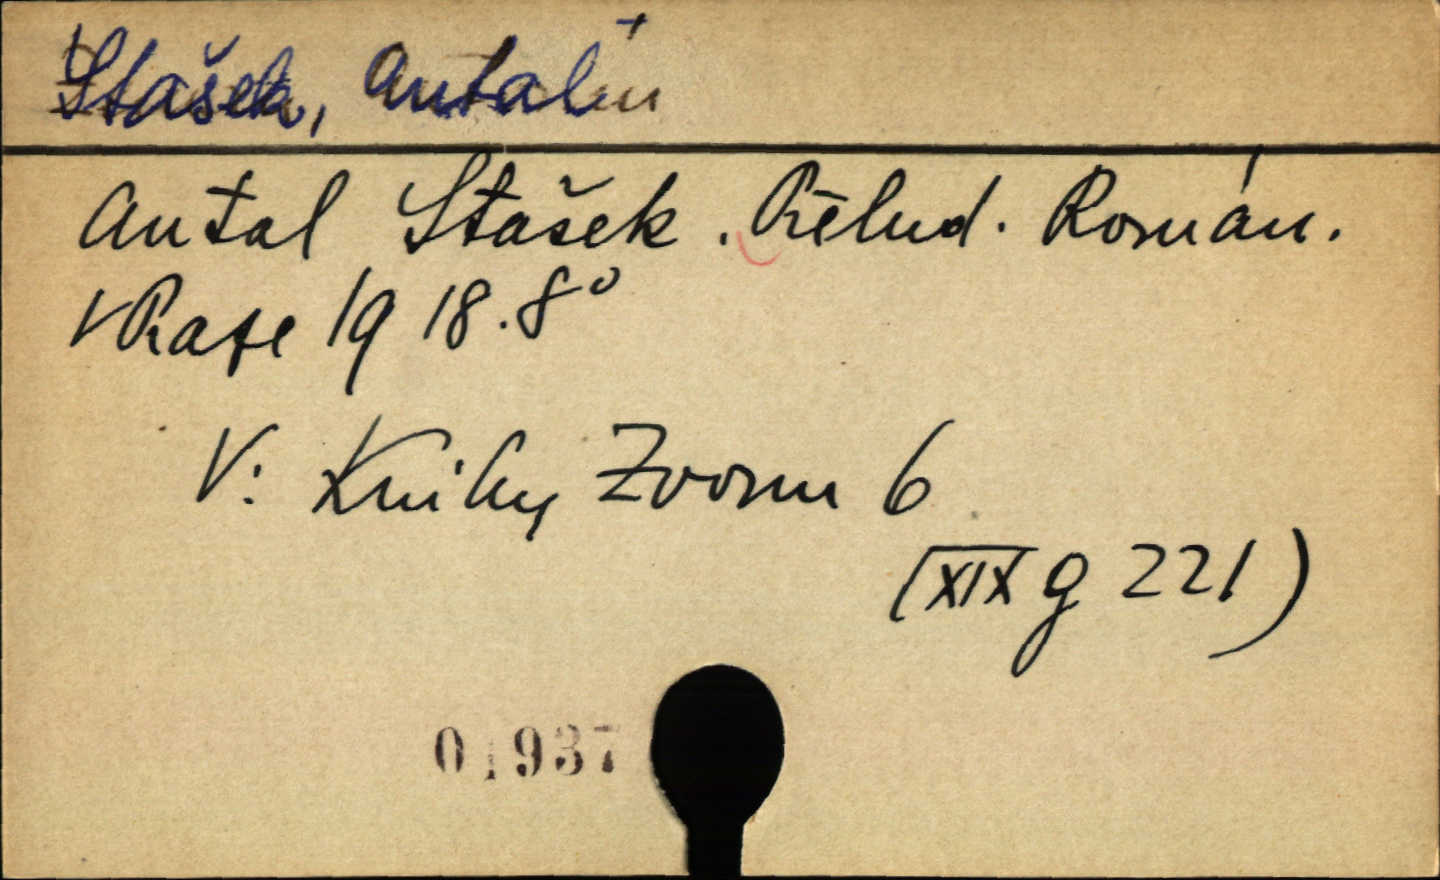 Stašek, Antalín
Antal Stašek. Přelud. Román.
V Praze 1918. 8°
V: Knihy Zvonu 6
(XIX g 221)
01937